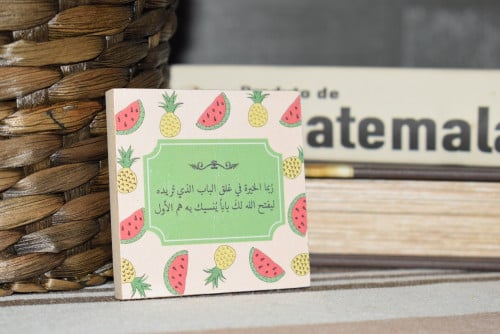 de
atemala
رُبما الخيرة في غلق الباب الذي تريده
ليفتح الله لك باباً يُنسيك به هم الأول